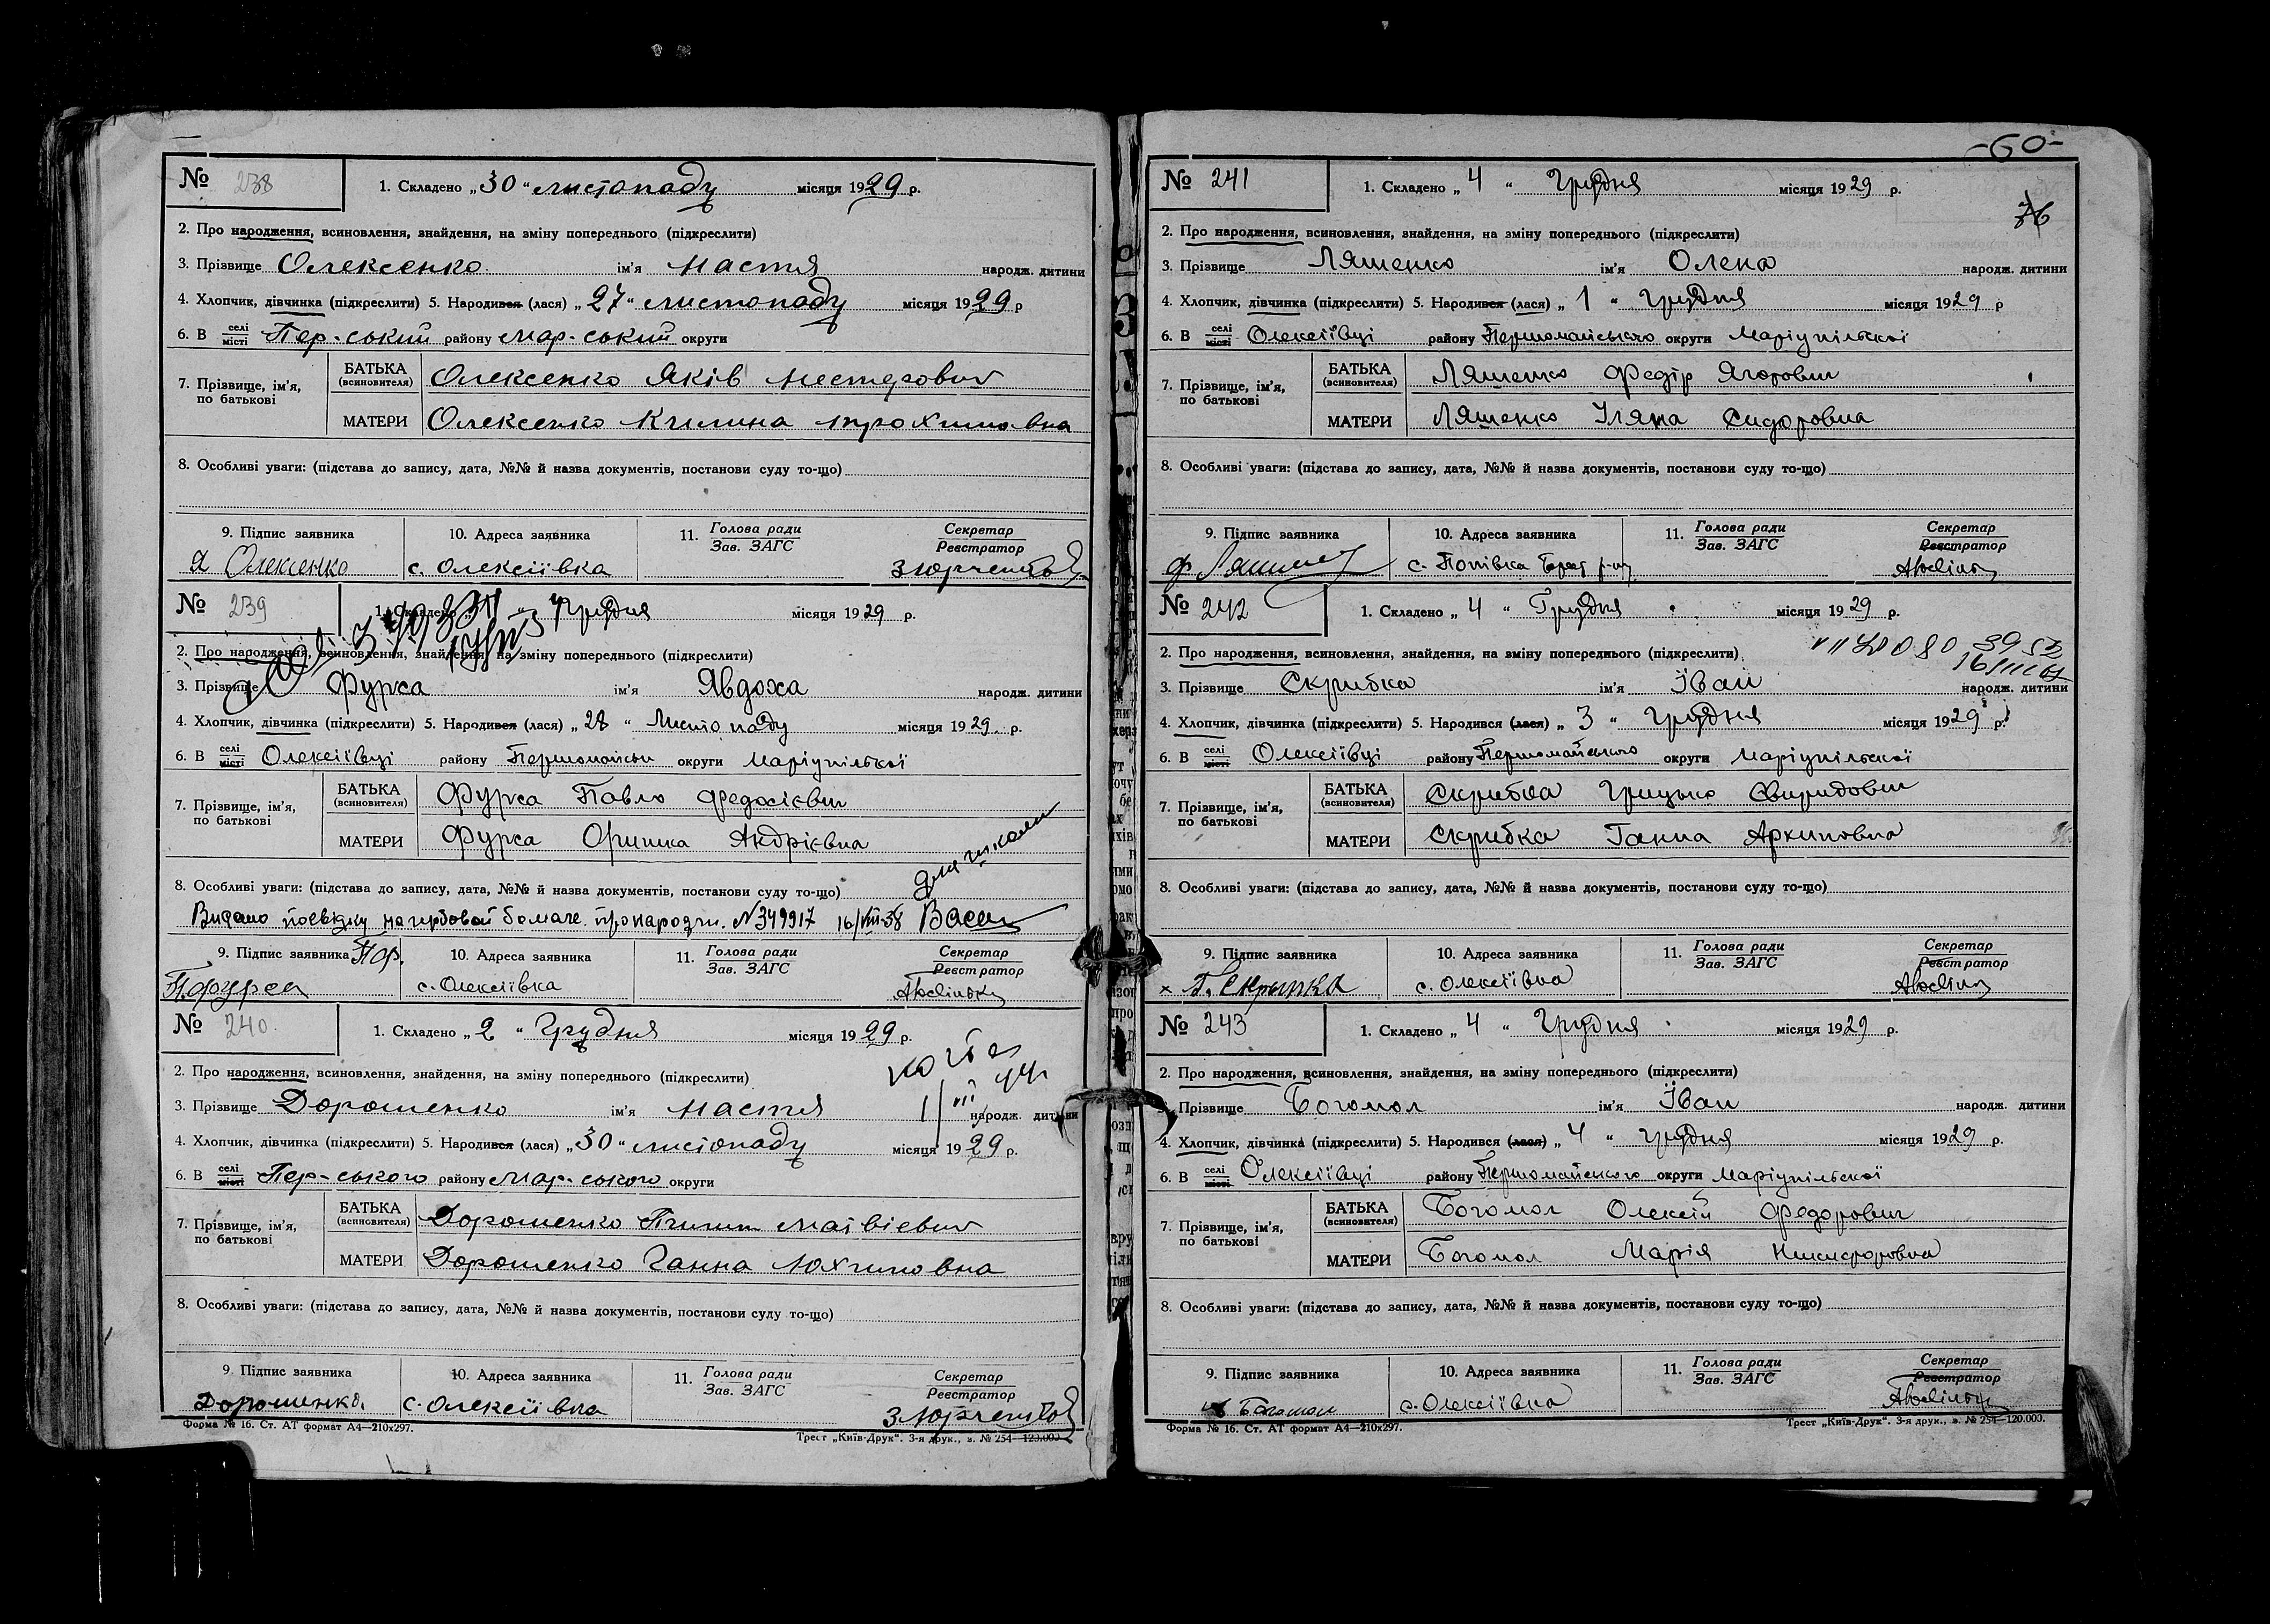 -60-
76
№ 238
1. Складено „ 30 " листопаду місяця 1929 р.
2. Про народження, всиновлення, знайдення, на зміну попереднього (підкреслити)
3. Прізвище Олексенко ім'я Настя народж. дитини
4. Хлопчик, дівчинка (підкреслити) 5. Народився (лася) „ 27 " листопаду місяця 1929 р
6. В селі місті Пер-ський району Мар-ський округи
7. Прізвище, ім'я, по батькові
БАТЬКА (всиновителя) Олексенко Яків Нестерович
МАТЕРИ Олексенко Килина Трохимовна
8. Особливі уваги: (підстава до запису, дата, №№ й назва документів, постанови суду то-що)
9. Підпис заявника 10. Адреса заявника 11. Голова ради Зав. ЗАГС Секретар Реєстратор
Я Олексенко с. Олексіївка
№ 239
1. Складено „ 4 " Грудня місяця 1929 р.
2. Про народження, всиновлення, знайдення, на зміну попереднього (підкреслити)
3. Прізвище Фурса ім'я Явдоха народж. дитини
4. Хлопчик, дівчинка (підкреслити) 5. Народився (лася) „ 28 " Листопаду місяця 1929. р.
6. В селі місті Олексіївці району Першомайськ округи Маріупільскої
7. Прізвище, ім'я, по батькові
БАТЬКА (всиновителя) Фурса Павло Федосієвич
МАТЕРИ Фурса Оришка Андрієвна
для школи
8. Особливі уваги: (підстава до запису, дата, №№ й назва документів, постанови суду то-що)
Видано посвідку на гербовой бомаге про народжн. №349917 16/VIII-38
9. Підпис заявника 10. Адреса заявника 11. Голова ради Зав. ЗАГС Секретар Реєстратор
П. Фурса с. Олексіївка
№ 240.
1. Складено „ 2 " Грудня місяця 1929 р.
2. Про народження, всиновлення, знайдення, на зміну попереднього (підкреслити)
3. Прізвище Дорошенко ім'я Настя народж. дитини
4. Хлопчик, дівчинка (підкреслити) 5. Народився (лася) „ 30 " листопаду місяця 1929 р.
6. В селі місті Пер-ського району Мар-ського округи
7. Прізвище, ім'я, по батькові
БАТЬКА (всиновителя) Дорошенко Матвієвич
МАТЕРИ Дорошенко Ганна Юхимовна
8. Особливі уваги: (підстава до запису, дата, №№ й назва документів, постанови суду то-що)
9. Підпис заявника 10. Адреса заявника 11. Голова ради Зав. ЗАГС Секретар Реєстратор
Дорошенко. с. Олексіївка
Форма № 16. Ст. АТ формат А4—210х297.
Трест „Київ-Друк". 3-я друк., з. № 254—120.000.
№ 241
1. Складено „ 4 " Грудня місяця 1929 р.
2. Про народження, всиновлення, знайдення, на зміну попереднього (підкреслити)
3. Прізвище Ляшенко ім'я Олена народж. дитини
4. Хлопчик, дівчинка (підкреслити) 5. Народився (лася) „ 1 " Грудня місяця 1929 р
6. В селі місті Олексіївці району Першомайського округи Маріупільскої
7. Прізвище, ім'я, по батькові
БАТЬКА (всиновителя) Ляшенко Федір Ягорович
МАТЕРИ Ляшенко Уляна Сидоровна
8. Особливі уваги: (підстава до запису, дата, №№ й назва документів, постанови суду то-що)
9. Підпис заявника 10. Адреса заявника 11. Голова ради Зав. ЗАГС Секретар Реєстратор
с. Попівка
№ 242
1. Складено „ 4 " Грудня місяця 1929 р.
2. Про народження, всиновлення, знайдення, на зміну попереднього (підкреслити)
3. Прізвище Скрибка ім'я Іван народж. дитини
4. Хлопчик, дівчинка (підкреслити) 5. Народився (лася) „ 3 " Грудня місяця 1929 р.
6. В селі місті Олексіївці району Першомайського округи Маріупільскої
7. Прізвище, ім'я, по батькові
БАТЬКА (всиновителя) Скрибка Грицько Свиридович
МАТЕРИ Скрибка Ганна Архиповна
8. Особливі уваги: (підстава до запису, дата, №№ й назва документів, постанови суду то-що)
9. Підпис заявника 10. Адреса заявника 11. Голова ради Зав. ЗАГС Секретар Реєстратор
с. Олексіївка
№ 243
1. Складено „ 4 " Грудня місяця 1929 р.
2. Про народження, всиновлення, знайдення, на зміну попереднього (підкреслити)
3. Прізвище Богомол ім'я Іван народж. дитини
4. Хлопчик, дівчинка (підкреслити) 5. Народився (лася) „ 4 " Грудня місяця 1929 р.
6. В селі місті Олексіївці району Першомайского округи Маріупільскої
7. Прізвище, ім'я, по батькові
БАТЬКА (всиновителя) Богомол Олексій Федорович
МАТЕРИ Богомол Марія Никифоровна
8. Особливі уваги: (підстава до запису, дата, №№ й назва документів, постанови суду то-що)
9. Підпис заявника 10. Адреса заявника 11. Голова ради Зав. ЗАГС Секретар Реєстратор
Богомол с. Олексіївка
Форма № 16. Ст. АТ формат А4—210х297.
Трест „Київ-Друк". 3-я друк., з. № 254—120.000.